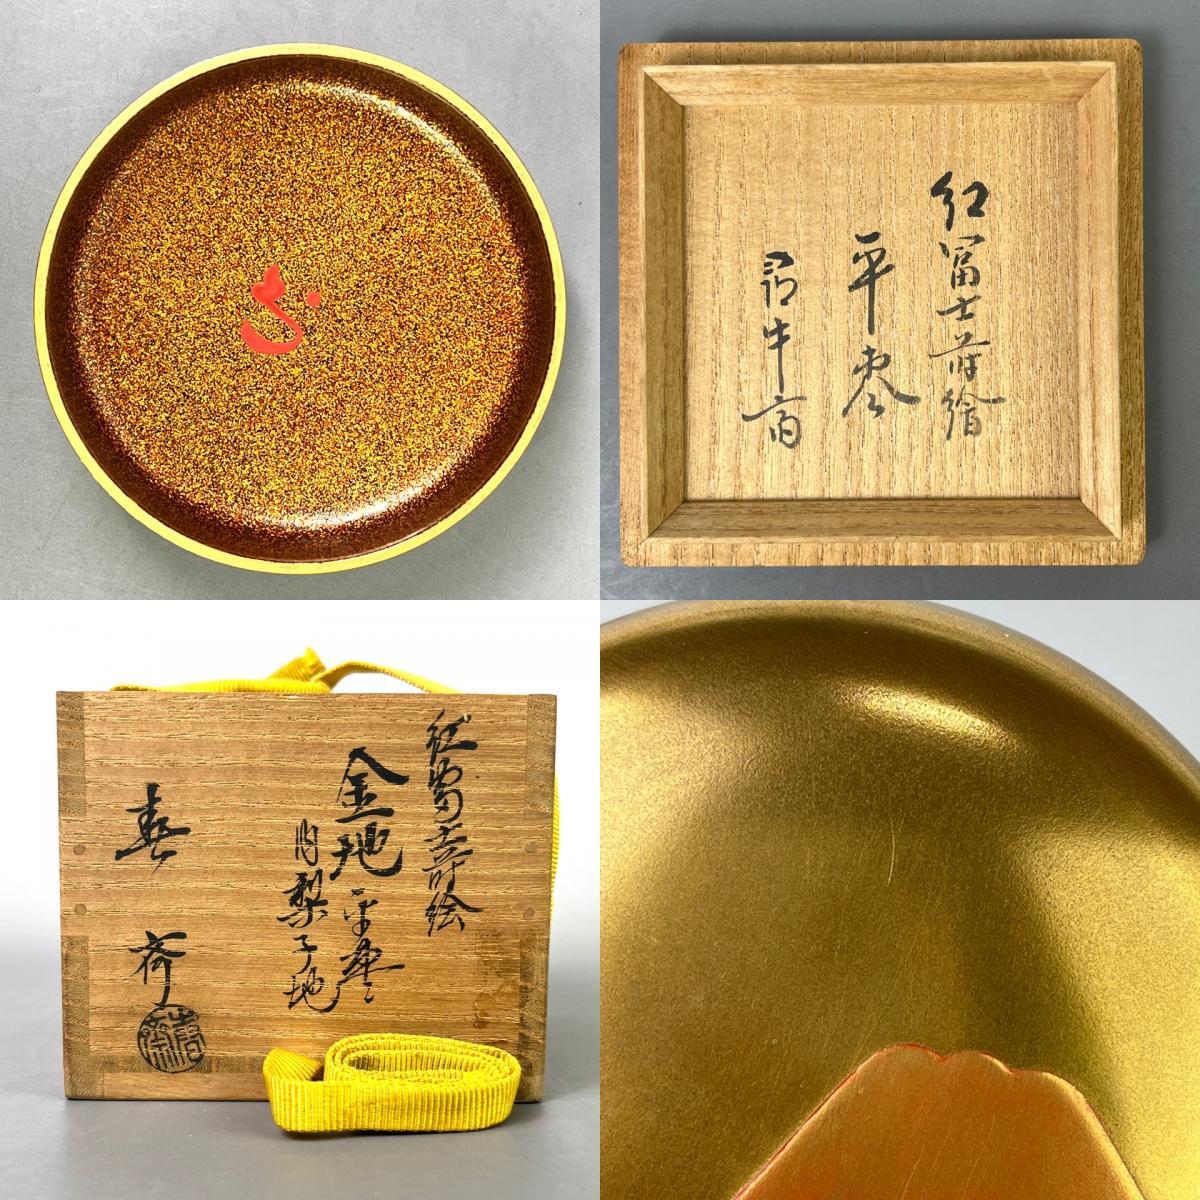 紅冨士蒔繪
平棗
尋牛斎
紅冨士蒔絵
金地平棗
内梨子地
春斎